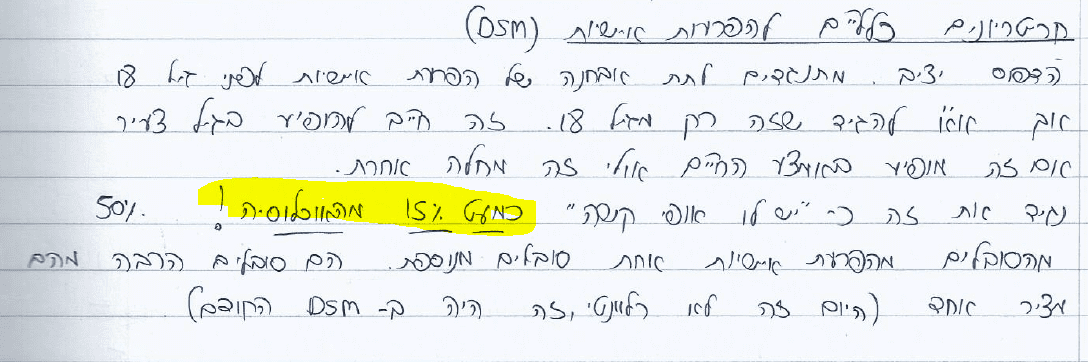 חריטריונים כללים להפרעות אישיות (DSM)
הדפוס יציב. מתנגדים לתת אבחנה של הפרעת אישיות לפני גיל 18
אך אא"ז להגיד שזה רק מגיל 18. זה חייב להופיע בגיל צעיר
אם זה מופיע באמצע החיים אולי זה מחלה אחרת.
נגיד את זה כ- "יש לו אופי קשה" כמעט 15% מהאוכלוסיה! 50%
מהסובלים מהפרעת אישיות אחת סובלים מנוספת. הם סובלים הרבה מהם
מציר אחד (היום זה לא רלוונטי, זה היה ב- DSM הקודם)